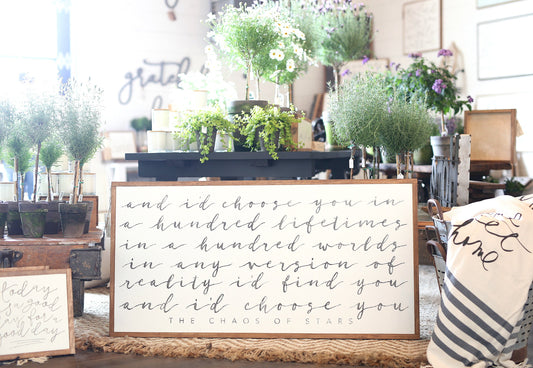 grateful
and i'd choose you in
a hundred lifetimes
in a hundred worlds
in any version of
reality i'd find you
and i'd choose you
THE CHAOS OF STARS
today
is a good
day for a
good day
home